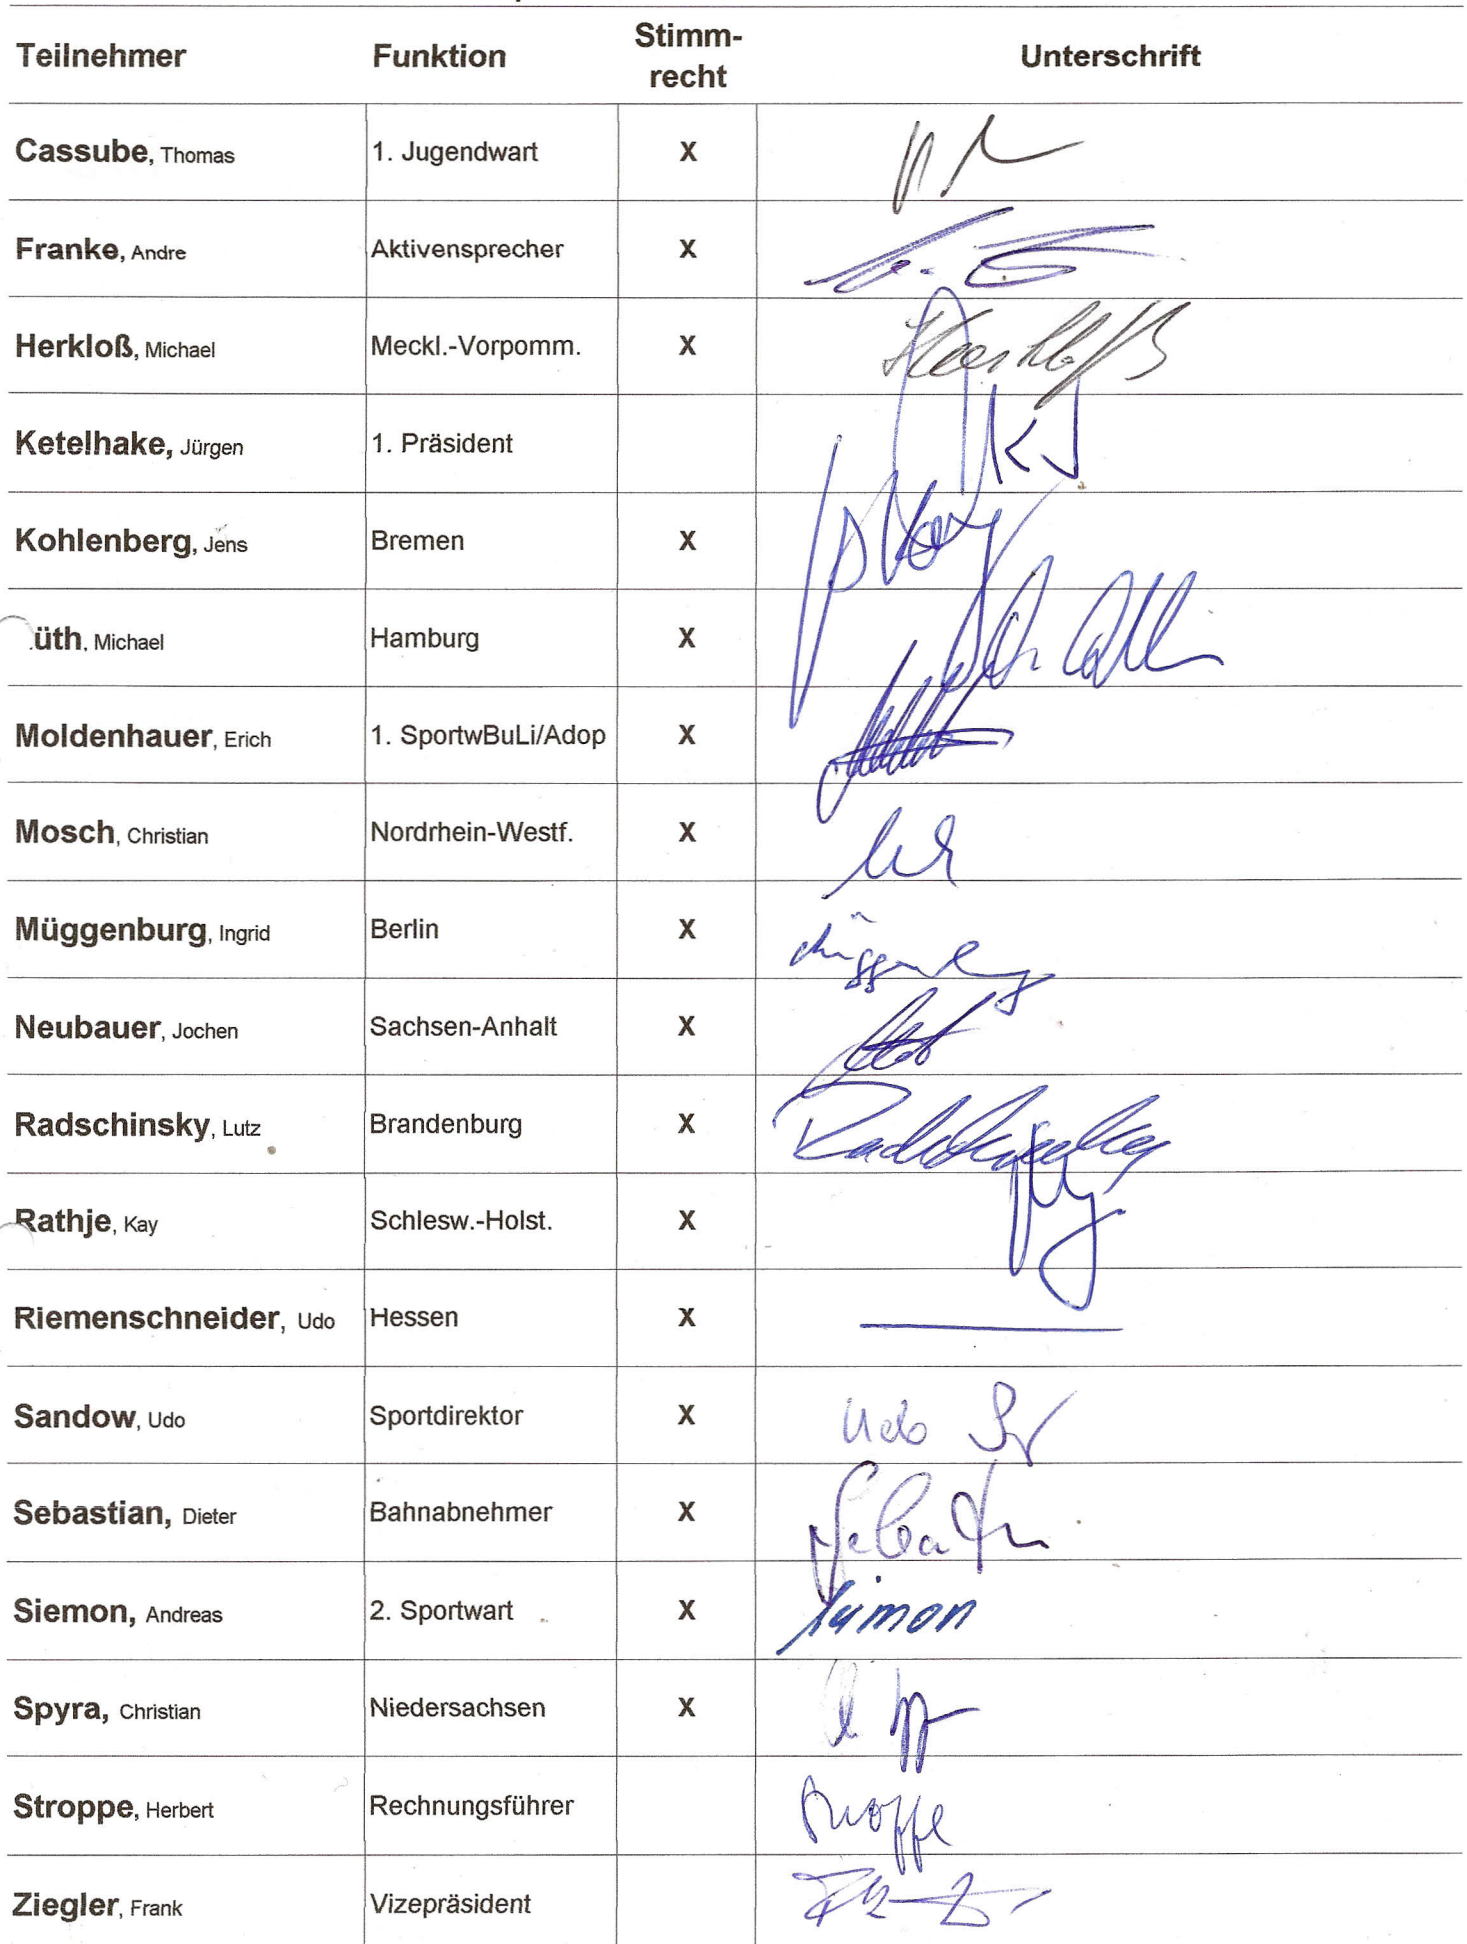 Teilnehmer Funktion Stimm-recht Unterschrift
Cassube, Thomas 1. Jugendwart X
Franke, Andre Aktivensprecher X
Herkloß, Michael Meckl.-Vorpomm. X Herkloß
Ketelhake, Jürgen 1. Präsident KJ
Kohlenberg, Jens Bremen X
üth, Michael Hamburg X
Moldenhauer, Erich 1. SportwBuLi/Adop X
Mosch, Christian Nordrhein-Westf. X
Müggenburg, Ingrid Berlin X Müggenburg
Neubauer, Jochen Sachsen-Anhalt X
Radschinsky, Lutz Brandenburg X Radschinsky
Rathje, Kay Schlesw.-Holst. X
Riemenschneider, Udo Hessen X
Sandow, Udo Sportdirektor X Udo
Sebastian, Dieter Bahnabnehmer X Sebastian
Siemon, Andreas 2. Sportwart X Siemon
Spyra, Christian Niedersachsen X
Stroppe, Herbert Rechnungsführer Stroppe
Ziegler, Frank Vizepräsident